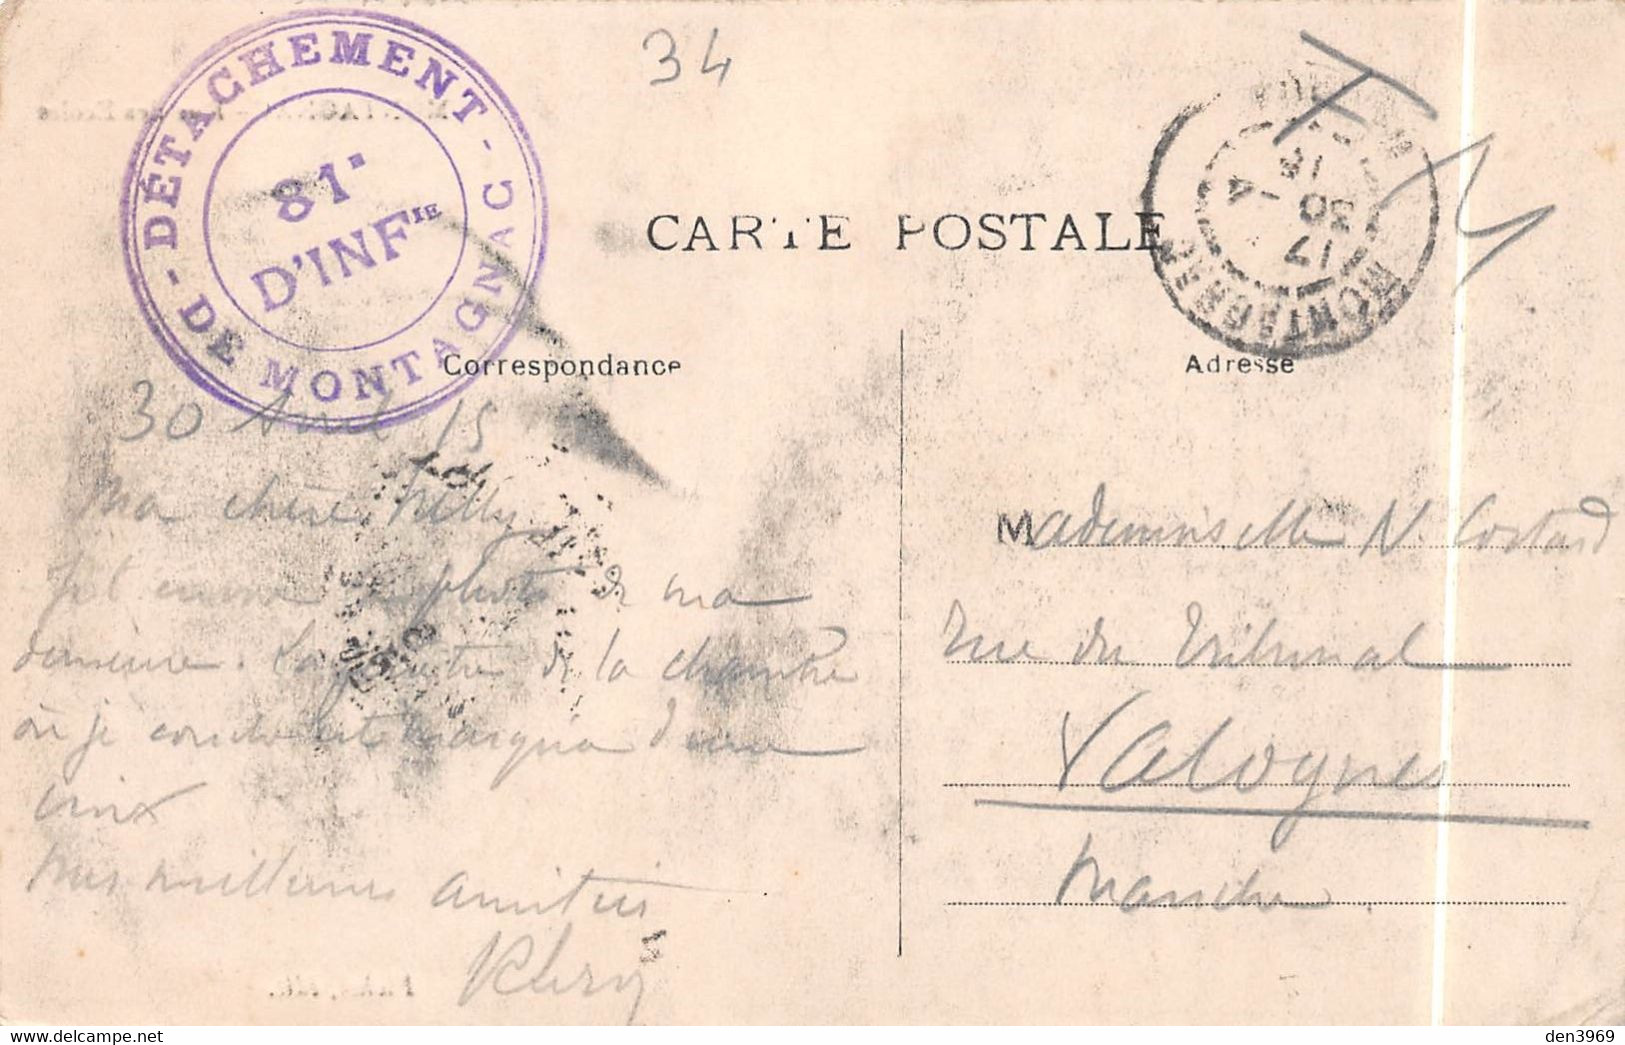 34
DÉTACHEMENT - DE MONTAGNAC -
81e
D'INFIE
CARTE POSTALE
17
30
-4
MONTAGNAC
Correspondance
Adresse
30 Avril 15
Ma chère Nelly
photo de ma
demeure. La fenêtre de la chambre
où je couche est marquée d'une
croix
Mes meilleures amitiés
Mademoiselle N. Costard
Rue du Tribunal
Valognes
Manche
den3969